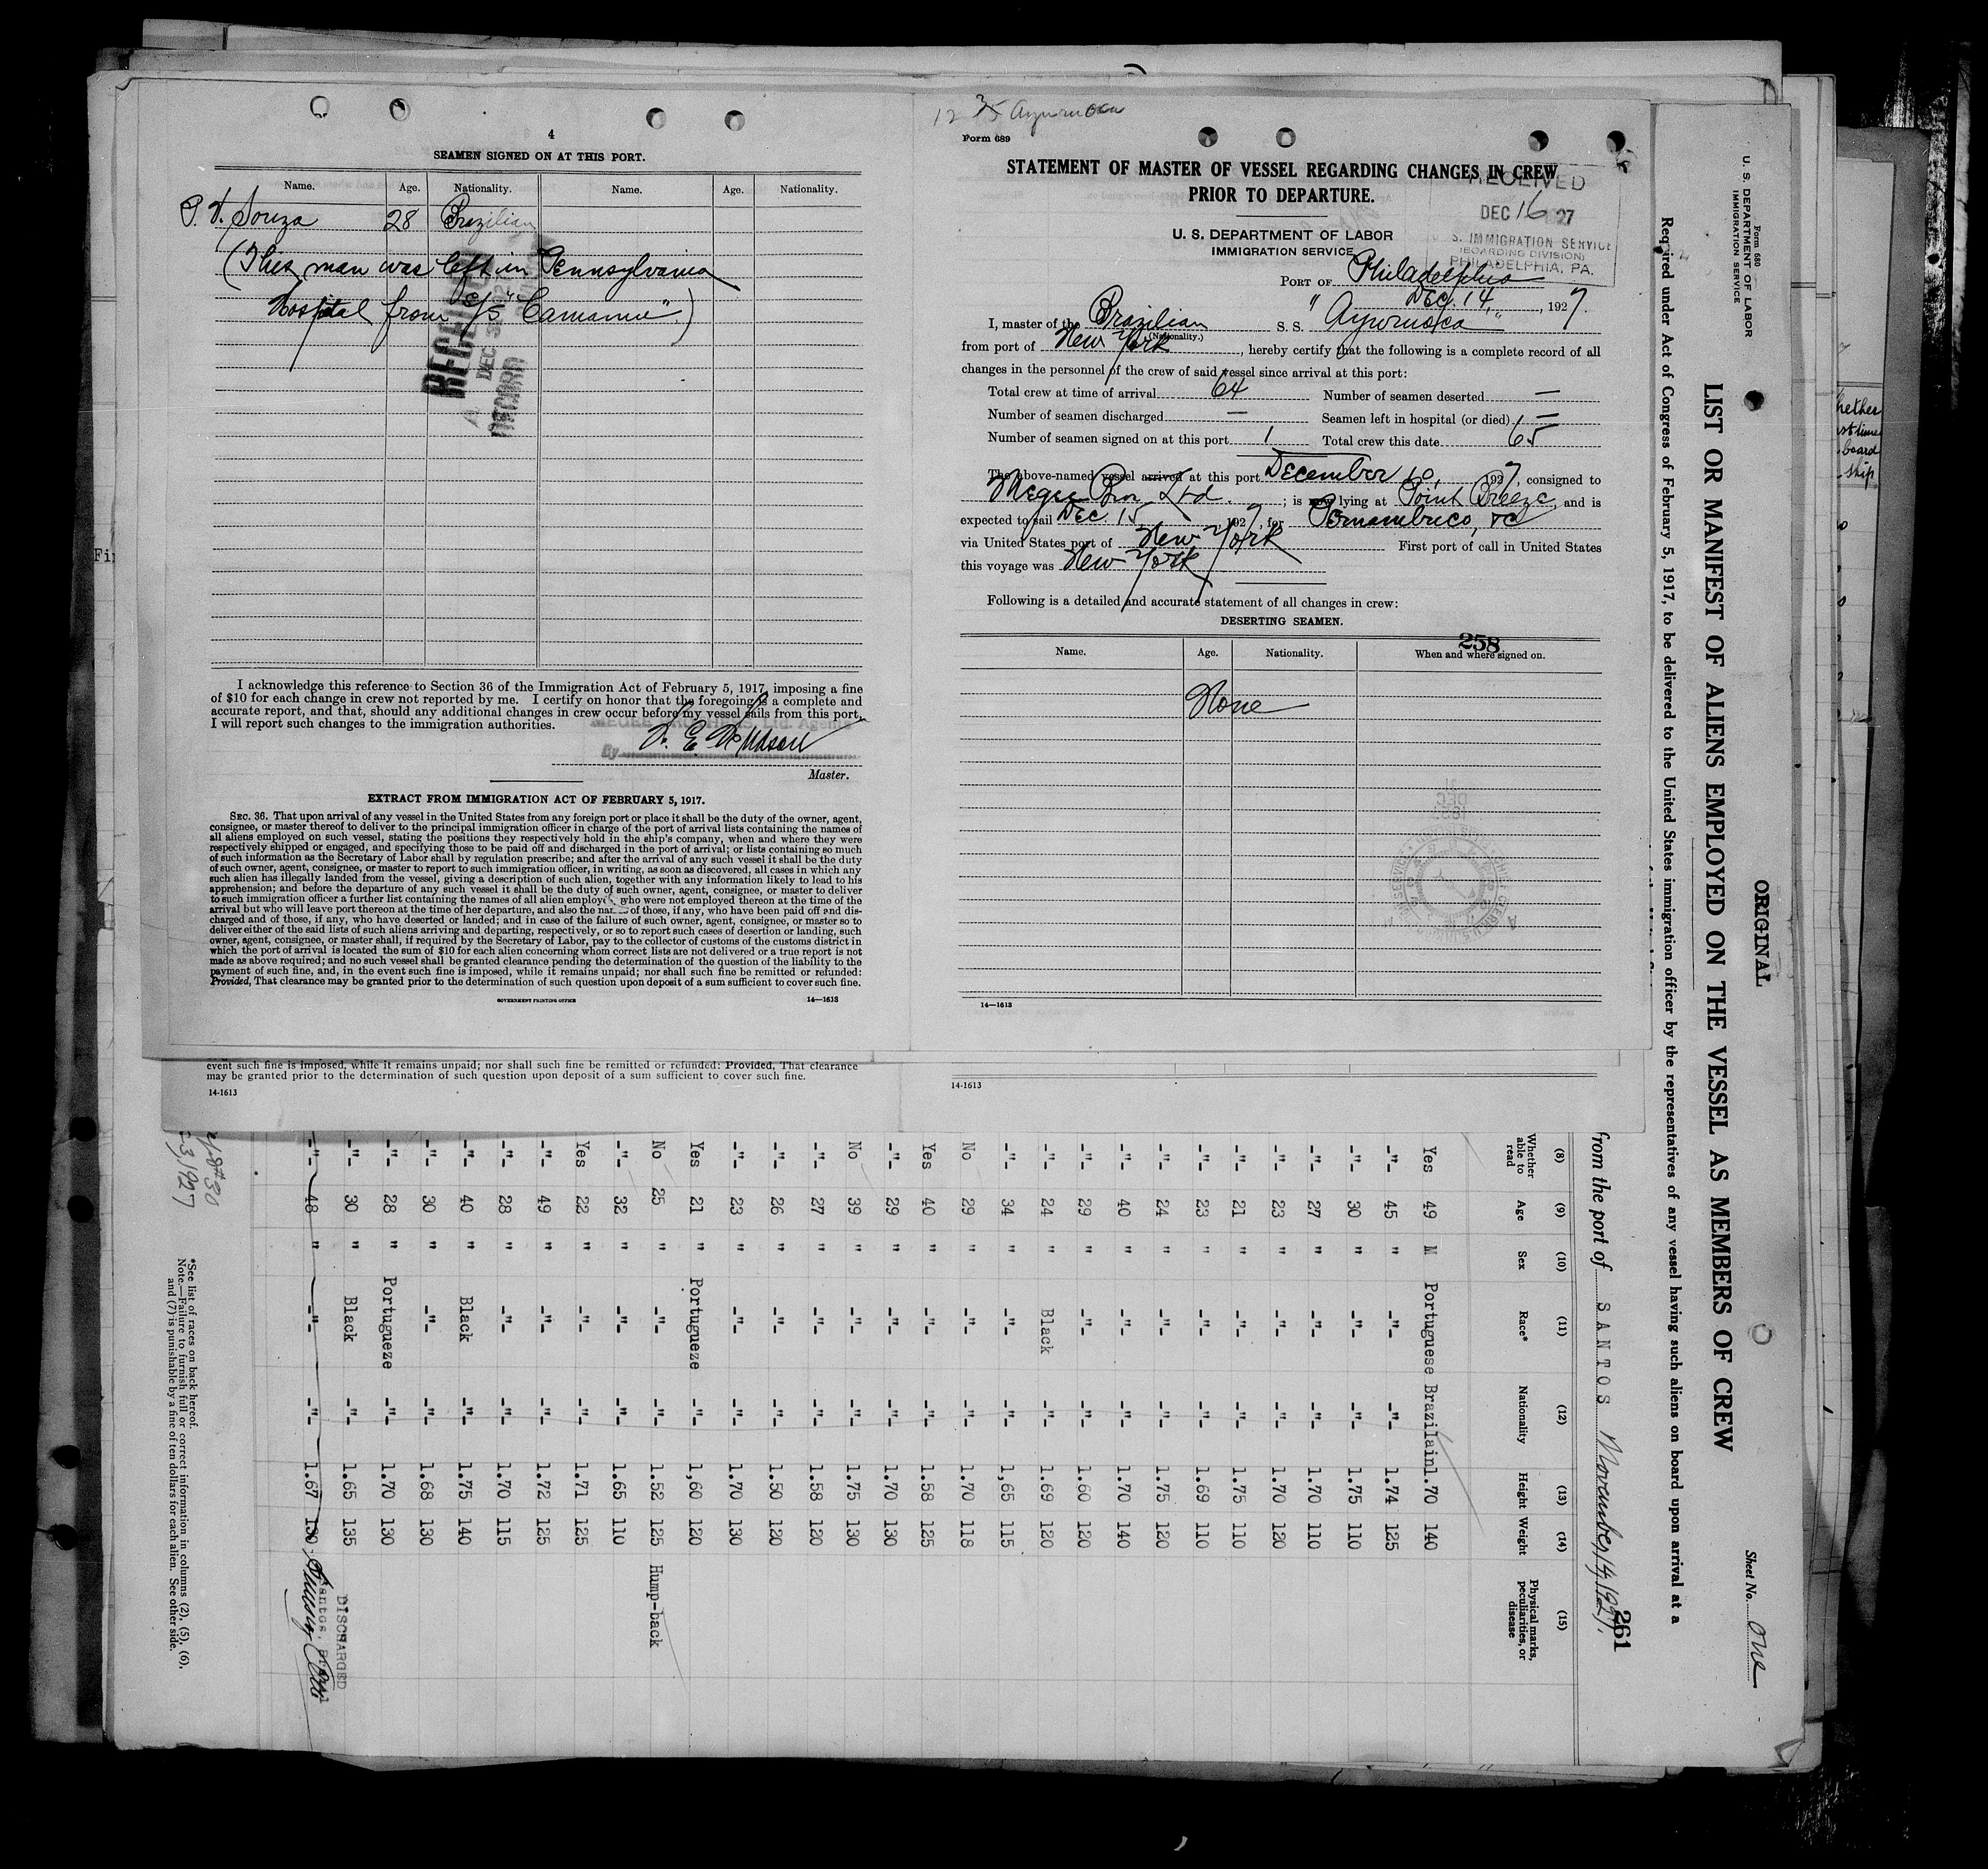 4
SEAMEN SIGNED ON AT THIS PORT.
Name. Age. Nationality. Name. Age. Nationality.
Souza 28 Brazilian
(This man was left in Pennsylvania
Hospital from S/S "Camamu".)
RECEIVED
DEC 3
RECORD
I acknowledge this reference to Section 36 of the Immigration Act of February 5, 1917, imposing a fine
of $10 for each change in crew not reported by me. I certify on honor that the foregoing is a complete and
accurate report, and that, should any additional changes in crew occur before my vessel sails from this port,
I will report such changes to the immigration authorities.
MEGEE BROTHERS, Ltd. Agents
By
Master.
EXTRACT FROM IMMIGRATION ACT OF FEBRUARY 5, 1917.
SEC. 36. That upon arrival of any vessel in the United States from any foreign port or place it shall be the duty of the owner, agent,
consignee, or master thereof to deliver to the principal immigration officer in charge of the port of arrival lists containing the names of
all aliens employed on such vessel, stating the positions they respectively hold in the ship's company, when and where they were
respectively shipped or engaged, and specifying those to be paid off and discharged in the port of arrival; or lists containing so much
of such information as the Secretary of Labor shall by regulation prescribe; and after the arrival of any such vessel it shall be the duty
of such owner, agent, consignee, or master to report to such immigration officer, in writing, as soon as discovered, all cases in which any
such alien has illegally landed from the vessel, giving a description of such alien, together with any information likely to lead to his
apprehension; and before the departure of any such vessel it shall be the duty of such owner, agent, consignee, or master to deliver
to such immigration officer a further list containing the names of all alien employ who were not employed thereon at the time of the
arrival but who will leave port thereon at the time of her departure, and also the na of those, if any, who have been paid off and dis-
charged and of those, if any, who have deserted or landed; and in case of the failure of such owner, agent, consignee, or master so to
deliver either of the said lists of such aliens arriving and departing, respectively, or so to report such cases of desertion or landing, such
owner, agent, consignee, or master shall, if required by the Secretary of Labor, pay to the collector of customs of the customs district in
which the port of arrival is located the sum of $10 for each alien concerning whom correct lists are not delivered or a true report is not
made as above required; and no such vessel shall be granted clearance pending the determination of the question of the liability to the
payment of such fine, and, in the event such fine is imposed, while it remains unpaid; nor shall such fine be remitted or refunded:
Provided, That clearance may be granted prior to the determination of such question upon deposit of a sum sufficient to cover such fine.
GOVERNMENT PRINTING OFFICE 14—1613
event such fine is imposed, while it remains unpaid; nor shall such fine be remitted or refunded: Provided, That clearance
may be granted prior to the determination of such question upon deposit of a sum sufficient to cover such fine.
14-1613
14-1613
12 35 Ayuruoca
Form 689
STATEMENT OF MASTER OF VESSEL REGARDING CHANGES IN CREW
PRIOR TO DEPARTURE.
RECEIVED
DEC 16 27
U. S. IMMIGRATION SERVICE
(BOARDING DIVISION)
PHILADELPHIA, PA.
U. S. DEPARTMENT OF LABOR
IMMIGRATION SERVICE
PORT OF Philadelphia
Dec. 14, 1927.
I, master of the Brazilian S. S. "Ayuruoca"
(Nationality.)
from port of New York, hereby certify that the following is a complete record of all
changes in the personnel of the crew of said vessel since arrival at this port:
Total crew at time of arrival 64 Number of seamen deserted —
Number of seamen discharged — Seamen left in hospital (or died) —
Number of seamen signed on at this port 1 Total crew this date 65
The above-named vessel arrived at this port December 10, 1927, consigned to
Megee Bros. Ltd.; is now lying at Point Breeze, and is
expected to sail Dec. 15, 1927, for Pernambuco, &c
via United States port of New York First port of call in United States
this voyage was New York
Following is a detailed and accurate statement of all changes in crew:
DESERTING SEAMEN.
258
Name. Age. Nationality. When and where signed on.
None
14—1613
Form 680
U. S. DEPARTMENT OF LABOR
IMMIGRATION SERVICE
ORIGINAL
Sheet No. One
LIST OR MANIFEST OF ALIENS EMPLOYED ON THE VESSEL AS MEMBERS OF CREW
Required under Act of Congress of February 5, 1917, to be delivered to the United States immigration officer by the representatives of any vessel having such aliens on board upon arrival at a
261
from the port of SANTOS November, 14, 1927.
(8) (9) (10) (11) (12) (13) (14) (15)
Whether able to read Age Sex Race* Nationality Height Weight Physical marks, peculiarities, or disease
Yes 49 M Portuguese Brazilain 1.70 140
-"- 45 " -"- -"- 1.74 125
-"- 30 " -"- -"- 1.75 110
-"- 27 " -"- -"- 1.70 110
-"- 23 " -"- -"- 1.70 120
-"- 21 " -"- -"- 1.75 110
-"- 23 " -"- -"- 1.69 110
-"- 24 " -"- -"- 1.75 120
-"- 40 " -"- -"- 1.70 140
-"- 29 " -"- -"- 1.60 120
-"- 24 " Black -"- 1.69 120
-"- 34 " -"- -"- 1,65 115
No 29 " -"- -"- 1.70 118
Yes 40 " -"- -"- 1.58 125
-"- 29 " -"- -"- 1.70 130
No 39 " -"- -"- 1.75 130
-"- 27 " -"- -"- 1.58 120
-"- 26 " -"- -"- 1.50 120
-"- 23 " -"- -"- 1.70 130
Yes 21 " Portugueze -"- 1,60 120
No 25 " -"- -"- 1.52 125 Hump-back
-"- 32 " -"- -"- 1.65 110
Yes 22 " -"- -"- 1.71 125
-"- 49 " -"- -"- 1.72 125
-"- 28 " -"- -"- 1.70 115
-"- 40 " Black -"- 1.75 140
-"- 30 " -"- -"- 1.68 130
-"- 28 " Portugueze -"- 1.70 130
-"- 30 " Black -"- 1.65 135
-"- 48 " -"- -"- 1.67 130
DISCHARGED
Santos, Brazil
*See list of races on back hereof.
Note.—Failure to furnish full or correct information in columns (2), (5), (6),
and (7) is punishable by a fine of ten dollars for each alien. See other side.